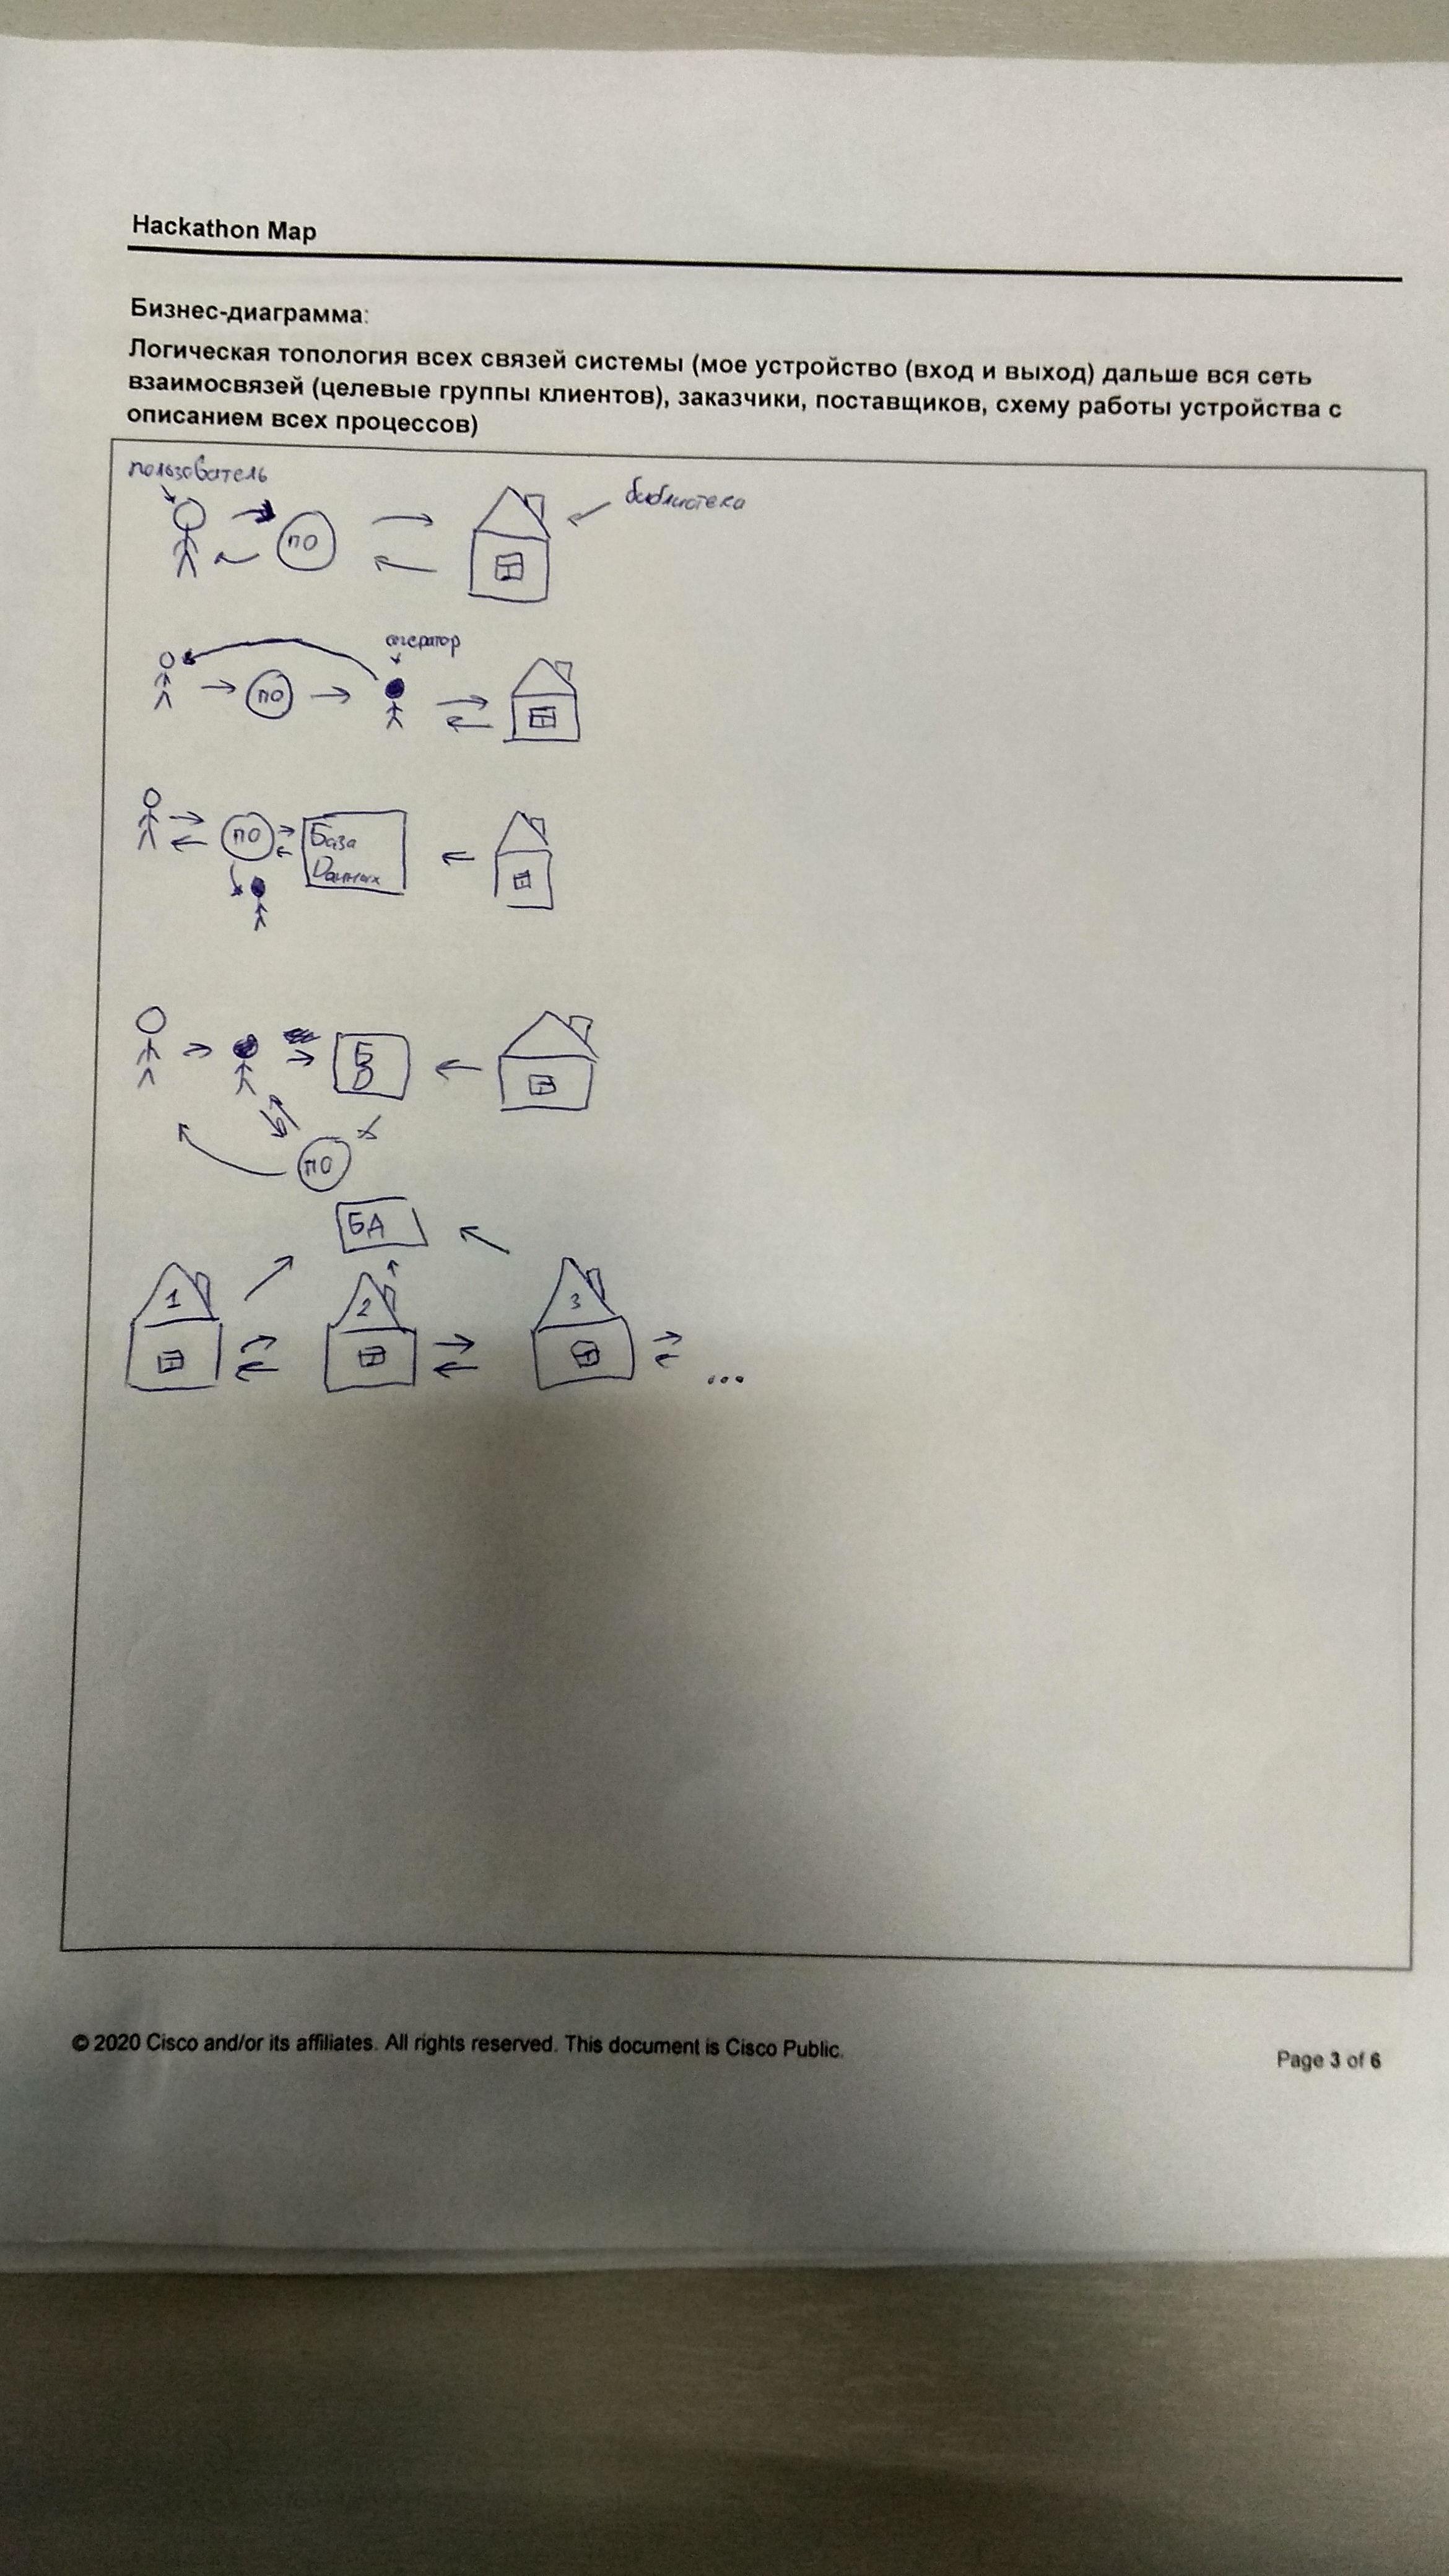 Hackathon Map
Бизнес-диаграмма:
Логическая топология всех связей системы (мое устройство (вход и выход) дальше вся сеть
взаимосвязей (целевые группы клиентов), заказчики, поставщиков, схему работы устройства с
описанием всех процессов)
пользователь
библиотека
ПО
оператор
ПО
ПО
База
Данных
Б
Д
ПО
БД
1
2
3
...
© 2020 Cisco and/or its affiliates. All rights reserved. This document is Cisco Public.
Page 3 of 6